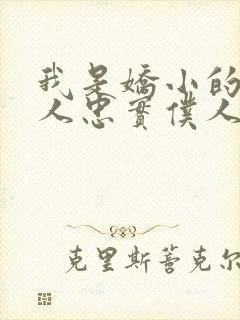 我是嬌小的
人忠實僕人
克里斯蒈克尔